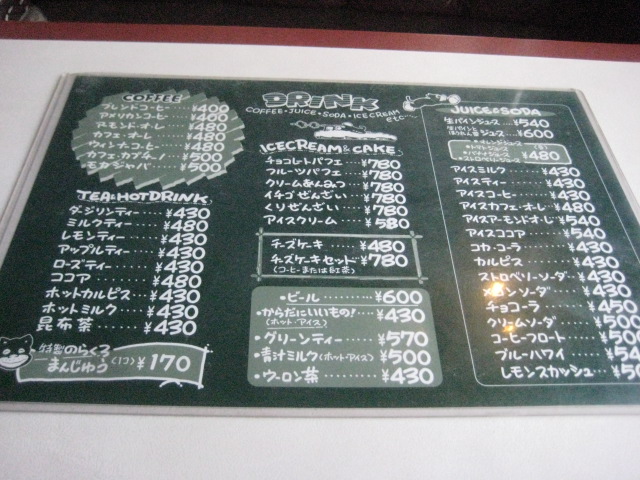 COFFEE
ブレンドコーヒー ‥‥ ¥400
アメリカンコーヒー ‥‥ ¥400
アーモンド・オ・レ ‥‥ ¥480
カフェ・オ・レ ‥‥ ¥480
ウィンナコーヒー ‥‥ ¥480
カフェ・カプチーノ ‥‥ ¥500
モカ・ジャバ ‥‥ ¥500
TEA&HOTDRINK
ダージリンティー ‥‥ ¥430
ミルクティー ‥‥ ¥480
レモンティー ‥‥ ¥430
アップルティー ‥‥ ¥430
ローズティー ‥‥ ¥430
ココア ‥‥ ¥480
ホットカルピス ‥‥ ¥430
ホットミルク ‥‥ ¥430
昆布茶 ‥‥ ¥430
特製 のらくろ
まんじゅう (1コ) ¥170
DRINK
COFFEE・JUICE・SODA・ICECREAM
etc…
ICECREAM & CAKE
チョコレトパフェ ‥‥ ¥780
フルーツパフェ ‥‥ ¥780
クリームあんみつ ‥‥ ¥780
イチゴぜんざい ‥‥ ¥780
くりぜんざい ‥‥ ¥780
アイスクリーム ‥‥ ¥580
チーズケーキ ‥‥ ¥480
チーズケーキセット ‥‥ ¥780
(コーヒーまたは紅茶)
・ビール ‥‥ ¥600
・からだにいいもの! ‥‥ ¥430
(ホット・アイス)
・グリーンティー ‥‥ ¥570
・青汁ミルク(ホット・アイス) ¥500
・ウーロン茶 ‥‥ ¥430
JUICE&SODA
生パインジュース ‥‥ ¥540
生パインと
ほうれん草ジュース ‥‥ ¥600
・オレンジジュース
・トマトジュース
・バナナジュース
・ストロベリージュース
¥480
アイスミルク ‥‥ ¥430
アイスティー ‥‥ ¥430
アイスコーヒー ‥‥ ¥430
アイスカフェ・オ・レ ‥‥ ¥480
アイスアーモンド・オ・レ ‥‥ ¥540
アイスココア ‥‥ ¥540
コカ・コーラ ‥‥ ¥430
カルピス ‥‥ ¥430
ストロベリーソーダ ‥‥ ¥430
メロンソーダ ‥‥ ¥430
チョコーラ ‥‥ ¥450
クリームソーダ ‥‥ ¥500
コーヒーフロート ‥‥ ¥500
ブルーハワイ ‥‥
レモンスカッシュ ‥‥